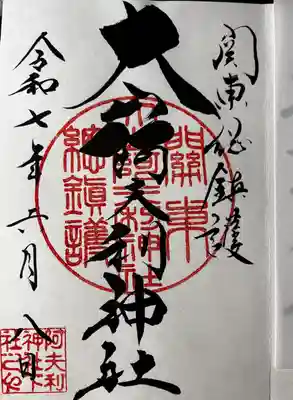 関東総鎮護
大山阿夫利神社
令和七年六月八日
關東
總鎮護
阿夫利
神社下
社之印